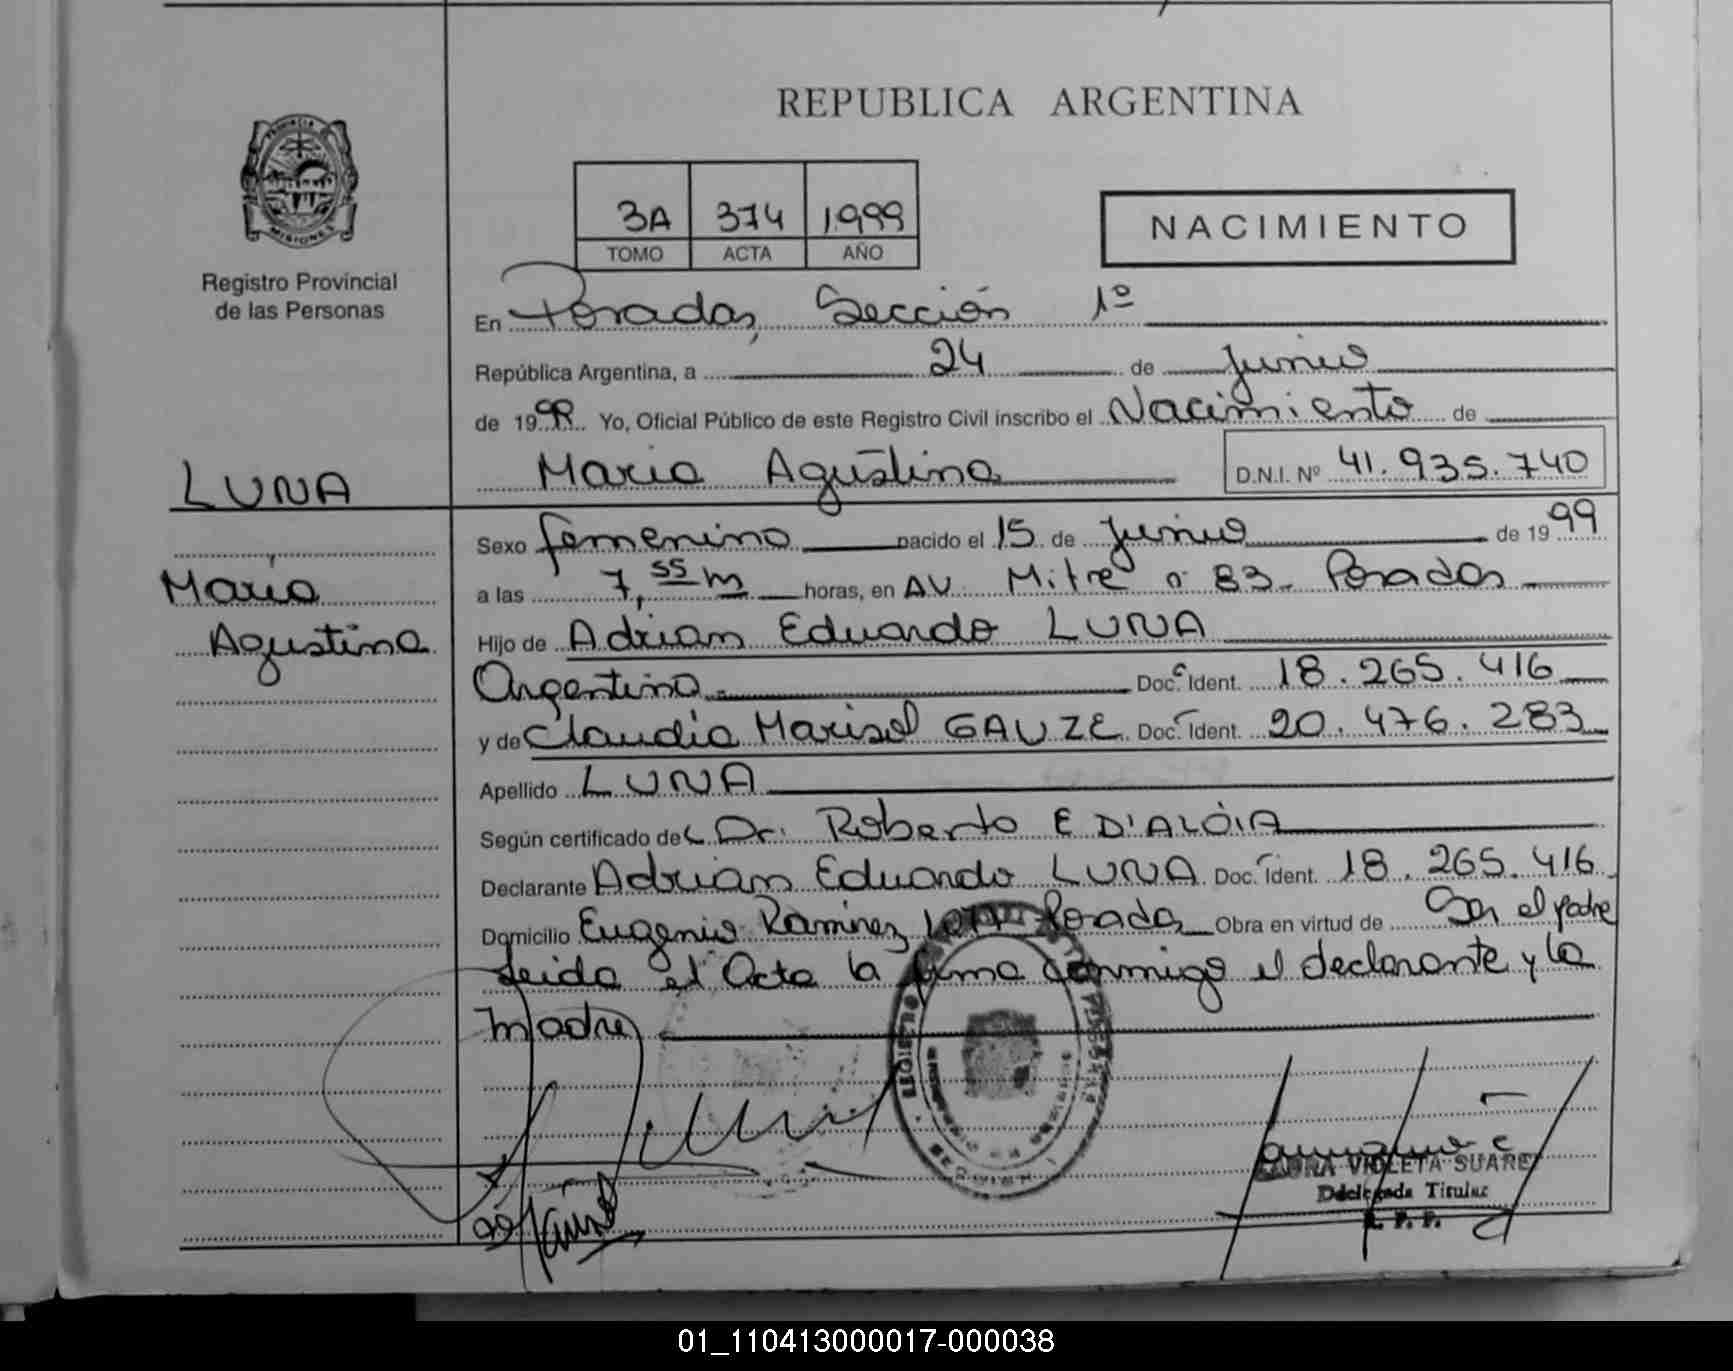 REPUBLICA ARGENTINA
PROVINCIA DE
MISIONES
Registro Provincial
de las Personas
3A 374 1999
TOMO ACTA AÑO
NACIMIENTO
En Posadas, Sección 1º
República Argentina, a 24 de Junio
de 1999 Yo, Oficial Público de este Registro Civil inscribo el Nacimiento de
Maria Agustina D.N.I. Nº 41.935.740
LUNA
Maria
Agustina
Sexo femenino nacido el 15 de Junio de 1999
a las 7,55 m horas, en AV. Mitre nº 83 - Posadas
Hijo de Adrian Eduardo LUNA
Argentino Doc. Ident. 18.265.416
y de Claudia Marisol GAUZE Doc. Ident. 20.476.283
Apellido LUNA
Según certificado de Dr. Roberto E D'ALÓIA
Declarante Adrian Eduardo LUNA Doc. Ident. 18.265.416
Domicilio Eugenio Ramirez Posadas Obra en virtud de Ser el padre
Leida el Acta la firma conmigo el declarante y la
Madre
LAURA VIOLETA SUAREZ
Delegada Titular
R. P. P.
01_110413000017-000038